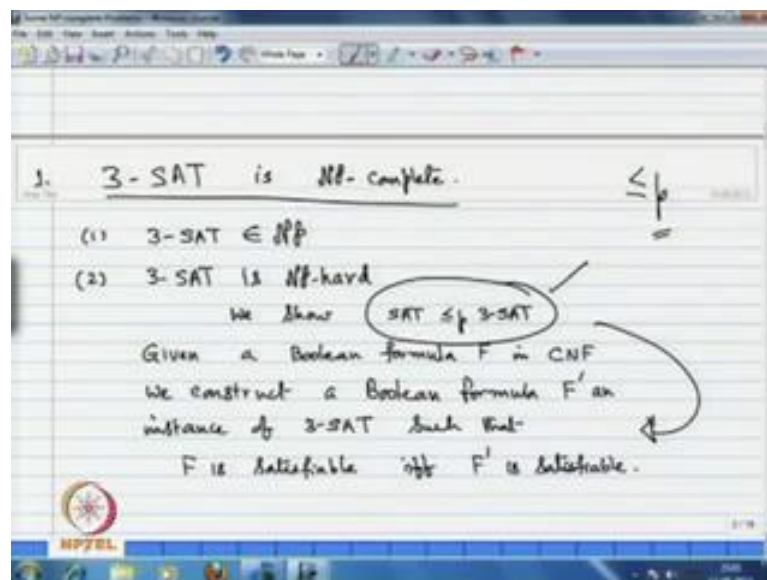 1. 3-SAT is NP-complete.
≤p
(1) 3-SAT ∈ NP
(2) 3-SAT is NP-hard
We show SAT ≤p 3-SAT
Given a Boolean formula F in CNF
We construct a Boolean formula F' an
instance of 3-SAT such that
F is satisfiable iff F' is satisfiable.
NPTEL